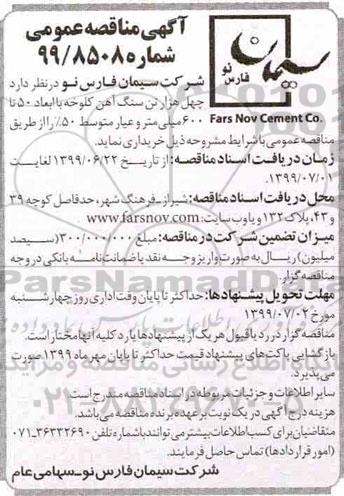 آگهی مناقصه عمومی
شماره ۹۹/۸۵۰۸
سیمان
فارس نو
Fars Nov Cement Co.
شرکت سیمان فارس نو در نظر دارد
چهل هزار تن سنگ آهن کلوخه با ابعاد ۵۰ تا
۶۰۰ میلی‌متر و عیار متوسط ۵۰٪ را از طریق
مناقصه عمومی با شرایط مشروحه ذیل خریداری نماید.
زمان دریافت اسناد مناقصه: از تاریخ ۱۳۹۹/۰۶/۲۲ لغایت
۱۳۹۹/۰۷/۰۱.
محل دریافت اسناد مناقصه: شیراز_فرهنگ شهر، حدفاصل کوچه ۳۹
و ۴۳، پلاک ۱۳۲ و یا وب سایت: www.farsnov.com
میزان تضمین شرکت در مناقصه: مبلغ ۳۰۰/۰۰۰/۰۰۰ (سیصد
میلیون) ریال به صورت واریز وجه نقد یا ضمانت‌نامه بانکی در وجه
مناقصه گزار
مهلت تحویل پیشنهادها: حداکثر تا پایان وقت اداری روز چهارشنبه
مورخ ۱۳۹۹/۰۷/۰۲
مناقصه گزار در رد یا قبول هر یک از پیشنهادها یا رد کلیه آنها مختار است.
بازگشایی پاکت‌های پیشنهاد قیمت حداکثر تا پایان مهرماه ۱۳۹۹ صورت
می‌پذیرد.
سایر اطلاعات و جزئیات مربوطه در اسناد مناقصه مندرج است
هزینه درج آگهی در یک نوبت بر عهده برنده مناقصه می‌باشد.
متقاضیان برای کسب اطلاعات بیشتر می‌توانند با شماره تلفن ۳۶۳۳۲۶۹۰-۰۷۱
(امور قراردادها) تماس حاصل فرمایند.
شرکت سیمان فارس نو_سهامی عام
ParsNamadData